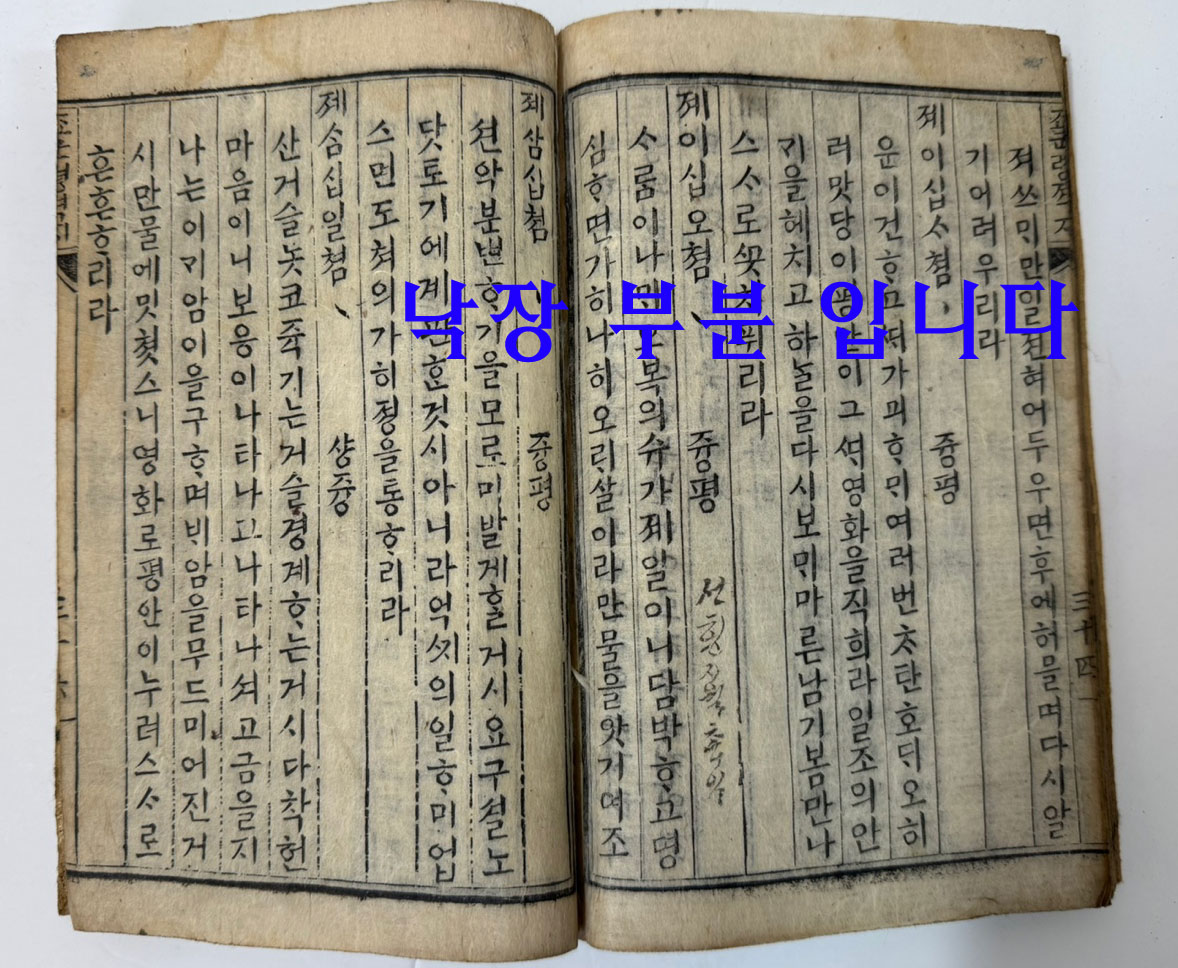 져쓰ᄆᆡ만일젼혀어두우면후에허믈며다시알
기어려우리라
졔이십ᄉᆞ쳠 즁평
운이건ᄒᆞ고ᄯᅢ가괴ᄒᆞᄆᆡ여러번ᄎᆞ탄호ᄃᆡ오히
러맛당이 이그 영화을직희라일조의안
기을헤치고하ᄂᆞᆯ을다시보ᄆᆡ마른남기봄만나
스ᄉᆞ로 리라
졔이십오쳠 즁평
ᄉᆞᄅᆞᆷ이나 복의슈가졔일이니담박ᄒᆞ고명
심ᄒᆞ면가히나히오ᄅᆡ살이라만물을앗기여조
三十四
졔삼십쳠 즁평
션악분변ᄒᆞ기을모로ᄆᆡ발게ᄒᆞᆯ거시요구셜노
닷토기에계 ᄒᆞᆫ것시아니라억 의일ᄒᆞᄆᆡ업
스면도쳐의가히졍을통ᄒᆞ리라
졔ᄉᆞᆷ십일쳠 샹즁
산거슬놋코쥭기는거슬경계ᄒᆞ는거시다착헌
마음이니보응이나타나고나타나셔고금을지
나는이ᄀᆡ암이을구ᄒᆞ며ᄇᆡ암을무드미어진거
시만물에밋쳣스니영화로평안이누려스ᄉᆞ로
흔흔ᄒᆞ리라
낙장 부분 입니다